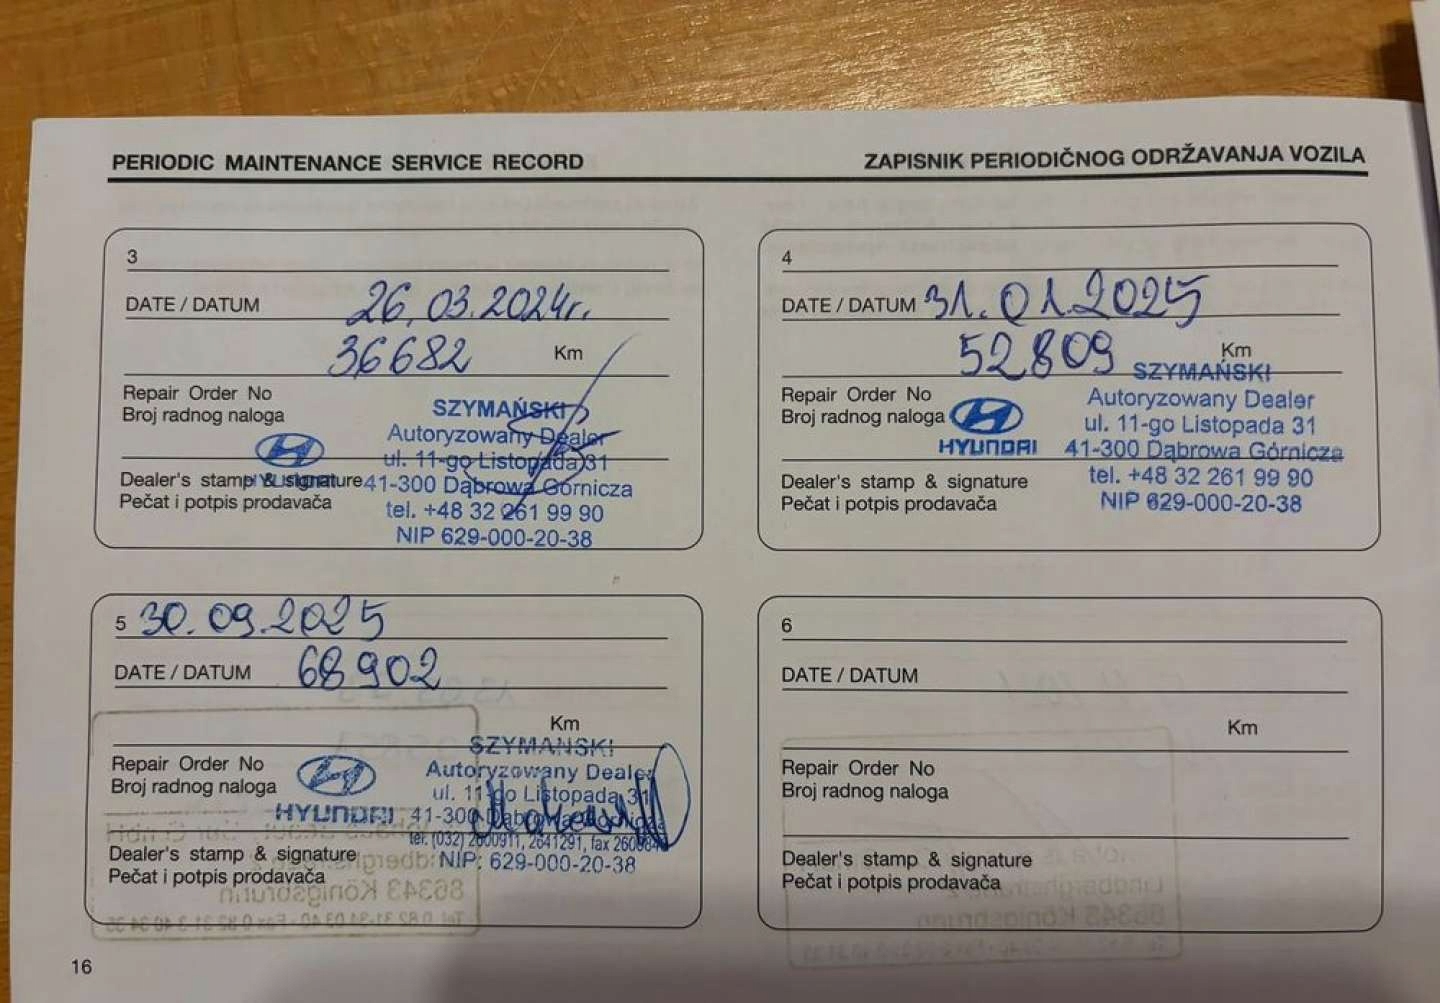 PERIODIC MAINTENANCE SERVICE RECORD
ZAPISNIK PERIODIČNOG ODRŽAVANJA VOZILA
3
DATE / DATUM 26.03.2024r.
36682 Km
Repair Order No
Broj radnog naloga
Dealer's stamp & signature
Pečat i potpis prodavača
HYUNDAI
SZYMAŃSKI
Autoryzowany Dealer
ul. 11-go Listopada 31
41-300 Dąbrowa Górnicza
tel. +48 32 261 99 90
NIP 629-000-20-38
4
DATE / DATUM 31.01.2025
52809 Km
Repair Order No
Broj radnog naloga
Dealer's stamp & signature
Pečat i potpis prodavača
HYUNDAI
SZYMAŃSKI
Autoryzowany Dealer
ul. 11-go Listopada 31
41-300 Dąbrowa Górnicza
tel. +48 32 261 99 90
NIP 629-000-20-38
5 30.09.2025
DATE / DATUM 68902
Km
Repair Order No
Broj radnog naloga
Dealer's stamp & signature
Pečat i potpis prodavača
HYUNDAI
SZYMAŃSKI
Autoryzowany Dealer
ul. 11-go Listopada 31
41-300 Dąbrowa Górnicza
tel. (032) 2600911, 2641291, fax
NIP: 629-000-20-38
86343 Königsbrunn
6
DATE / DATUM
Km
Repair Order No
Broj radnog naloga
Dealer's stamp & signature
Pečat i potpis prodavača
86343 Königsbrunn
16